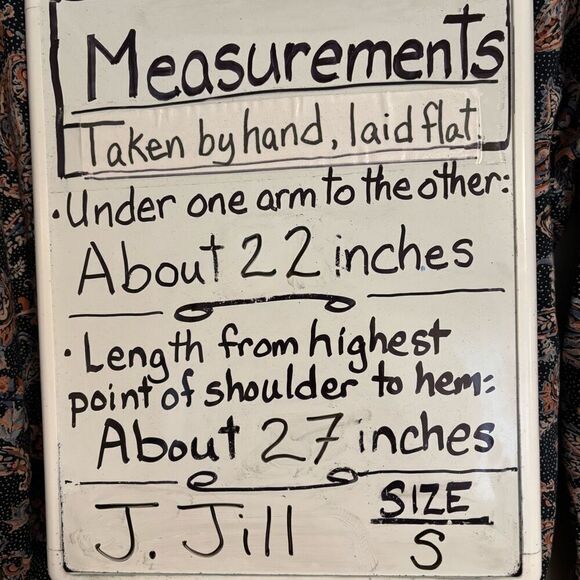 Measurements
Taken by hand, laid flat.
• Under one arm to the other:
About 22 inches
• Length from highest
point of shoulder to hem:
About 27 inches
J. Jill
SIZE
S